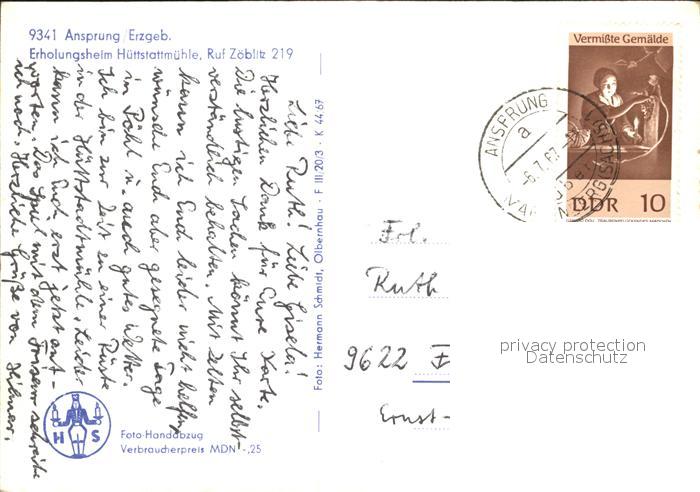 9341 Ansprung/Erzgeb.
Erholungsheim Hüttstattmühle, Ruf Zöblitz 219
Liebe Ruth! Liebe Gisela!
Herzlichen Dank für Eure Karte.
Die lustigen Sachen könnt Ihr selbst-
verständlich behalten. Mit Zelten
kann ich Euch leider nicht helfen,
wünsche Euch aber gesegnete Tage
in u. auch gutes Wetter.
Ich bin zur Zeit zu einer Rüste
in der Hüttstadtmühle. Leider
kann ich Euch erst jetzt ant-
worten. Den Spul mit dem schreibe
ich noch. Herzliche Grüße von
H S
Foto-Handabzug
Verbraucherpreis MDN -,25
Foto: Hermann Schmidt, Olbernhau · F III/20/3 · K 44/67
Vermißte Gemälde
DDR 10
ANSPRUNG
a
-6.7.67
Frl.
Ruth
9622 F
Ernst-
privacy protection
Datenschutz